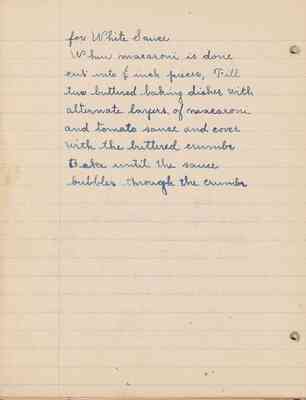 for White Sauce
When macaroni is done
cut into ½ inch pieces, Fill
two buttered baking dishes with
alternate layers of macaroni
and tomato sauce and cover
with the buttered crumbs
Bake until the sauce
bubbles through the crumbs